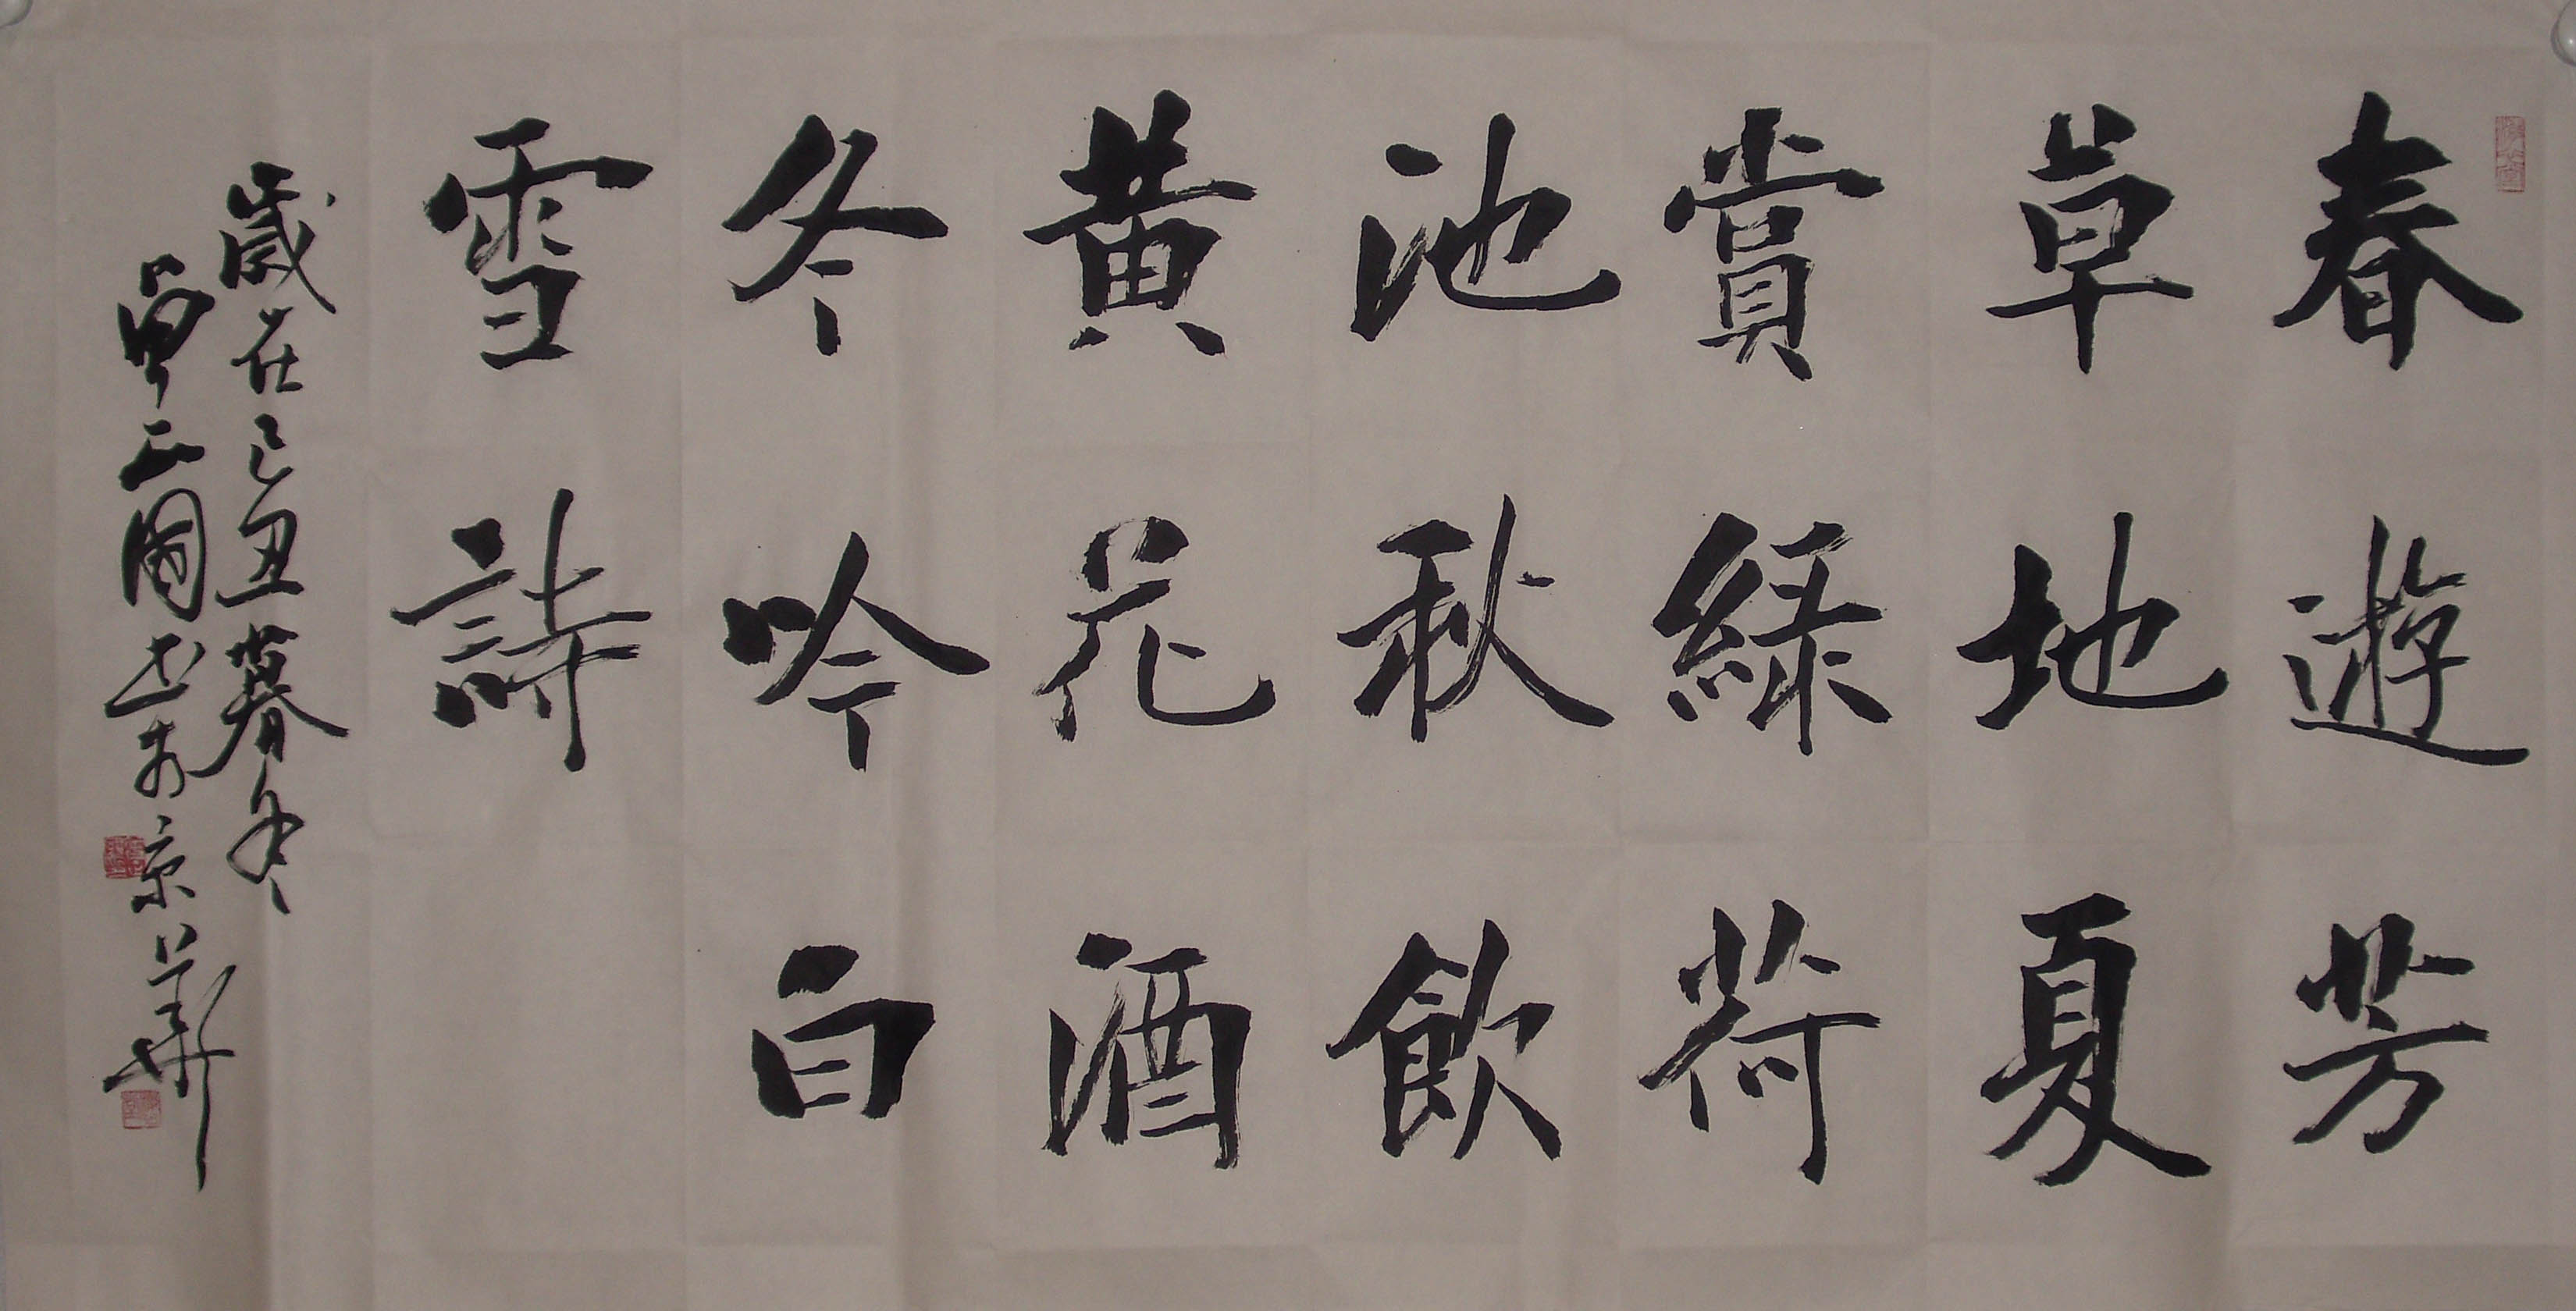 春遊芳
草地夏
賞綠荷
池秋飲
黃花酒
冬吟白
雪詩
歲在己丑暮冬
正國書於京華